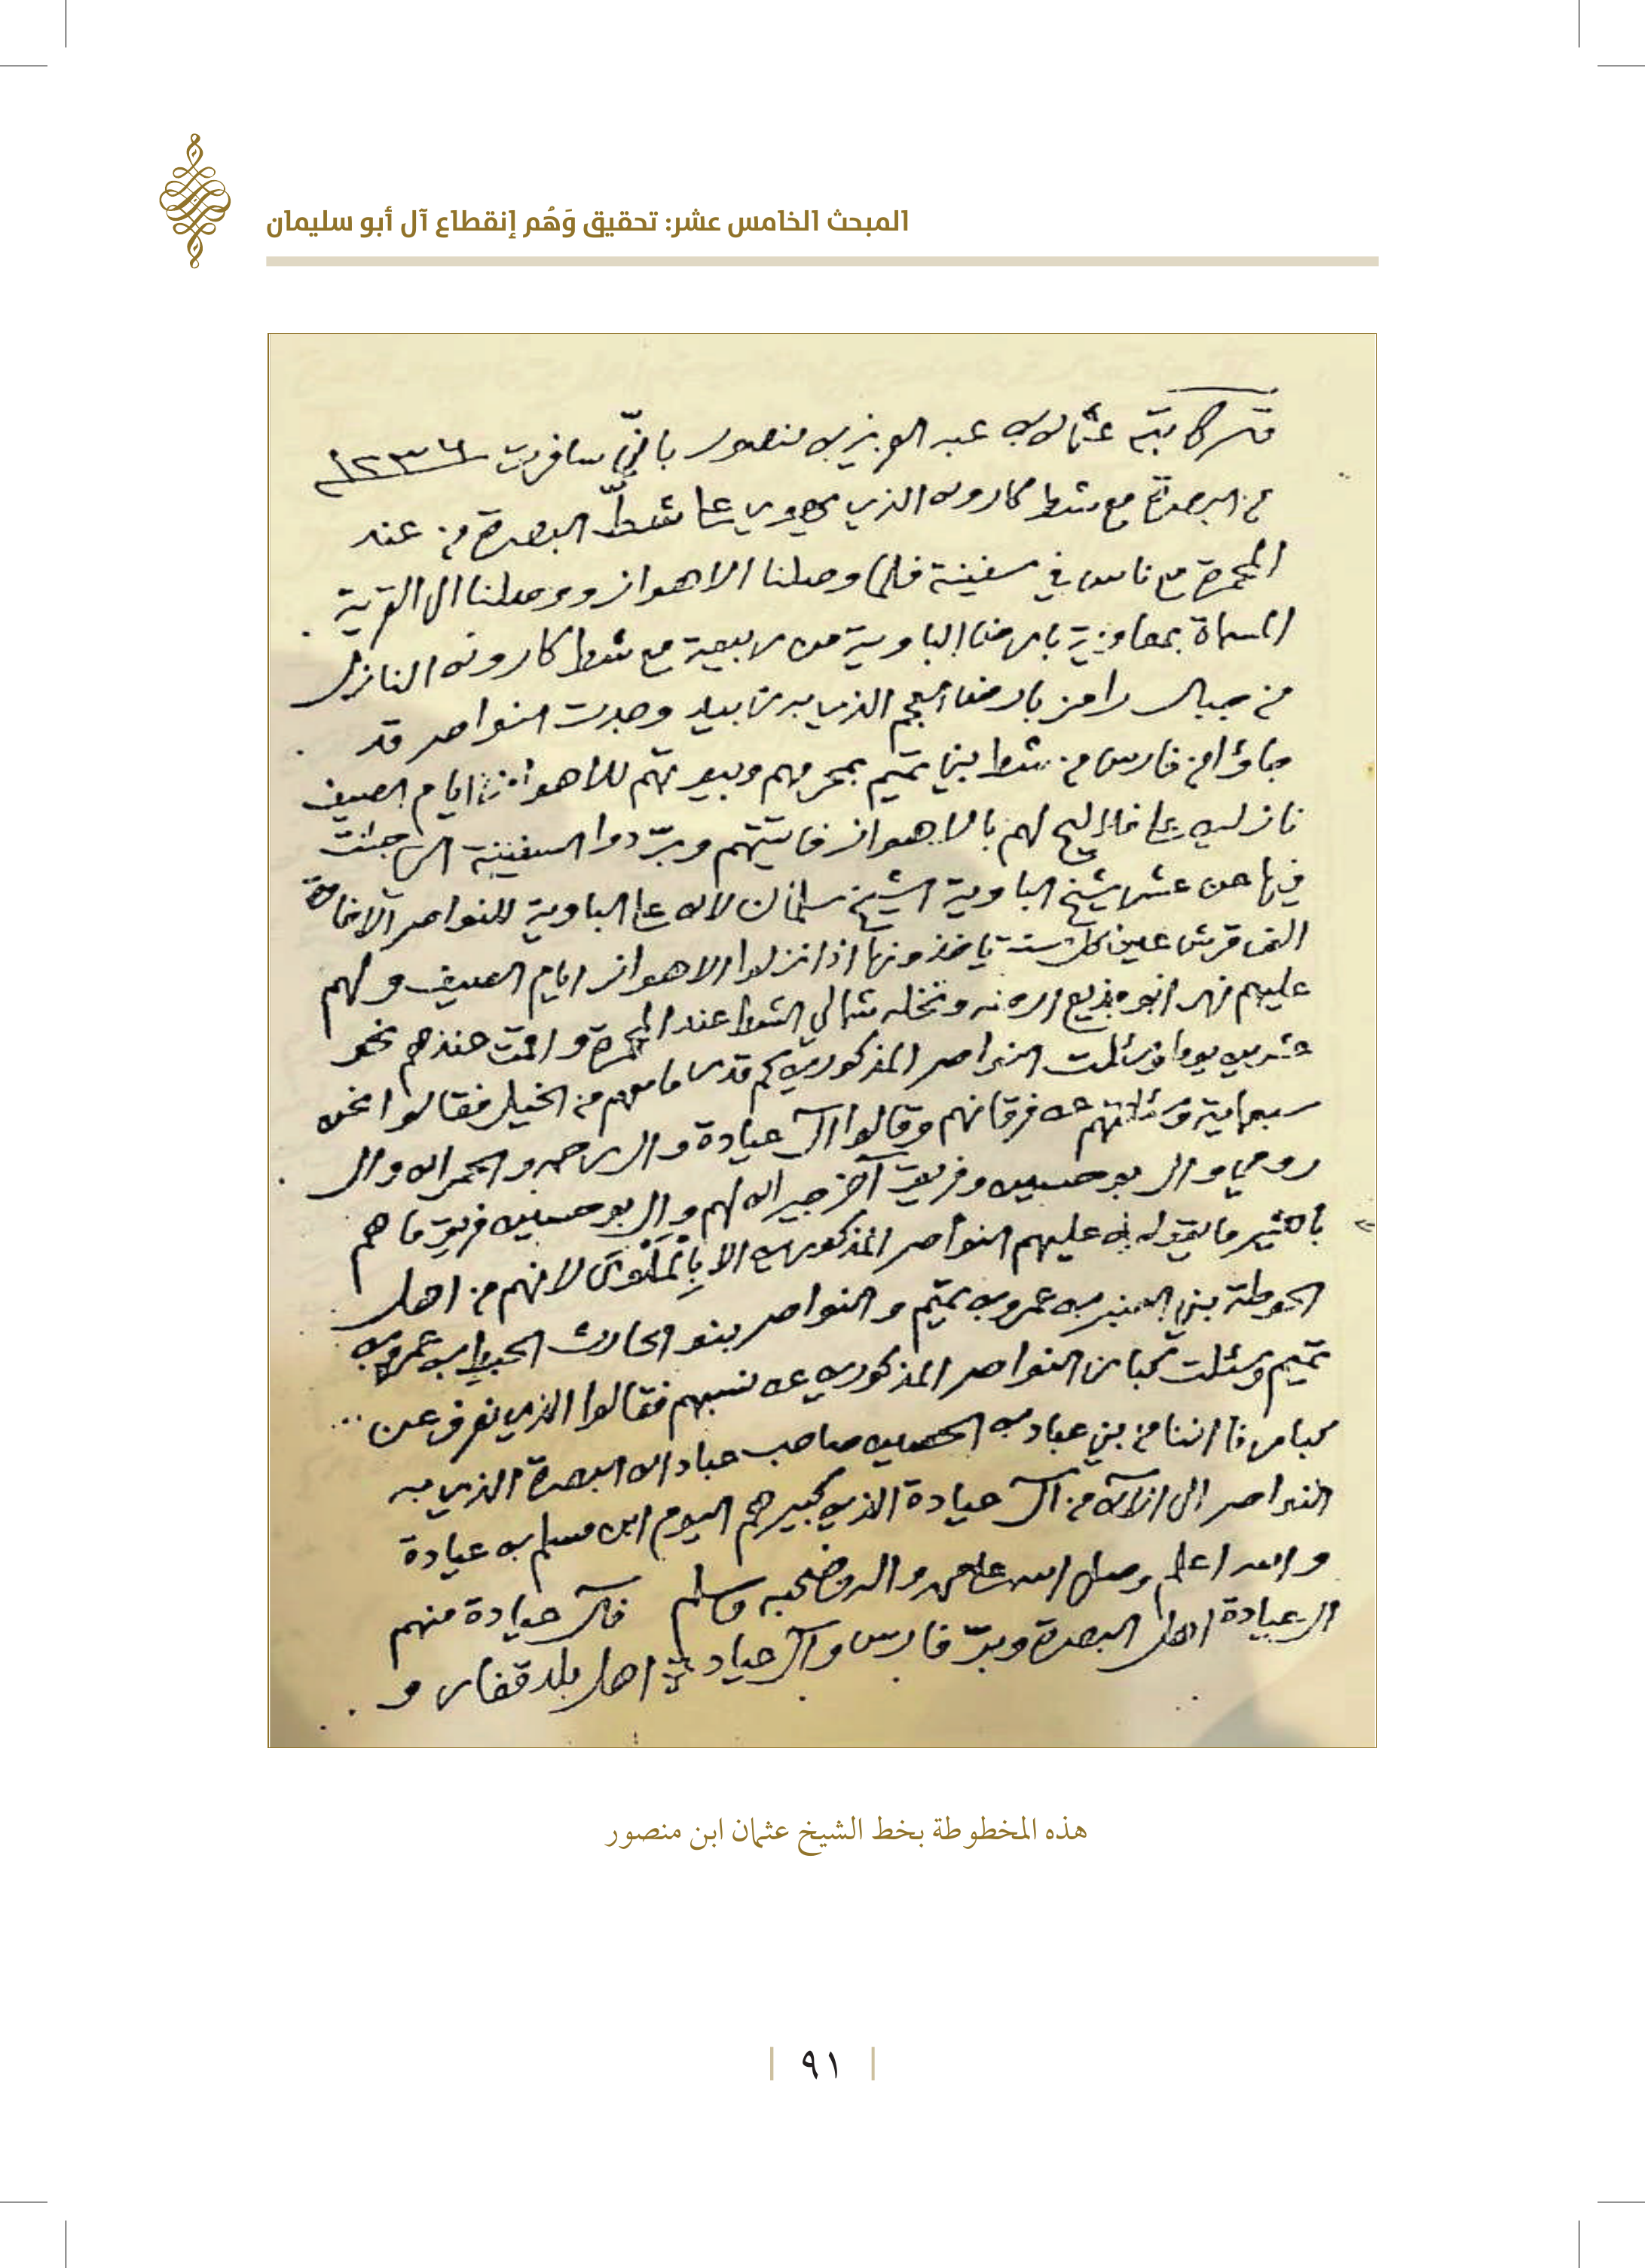 المبحث الخامس عشر: تحقيق وَهُم إنقطاع آل أبو سليمان
عثمان بن عبد العزيز بن منصور باني سافرت ١٢٣٦
من البصرة مع شط كارون الذي على شط البصرة من عند
المحمرة مع ناس في سفينة فلما وصلنا الاهواز ووصلنا الى القرية
المسماة بارض الباوية من ربيعة مع شط كارون النازل
من جبال رامز بارض العجم الذي وجدت النواصر قد
جاؤا من فارس من شط بني تميم للاهواز ايام الصيف
نازلين على لهم بالاهواز وردوا السفينة التي جئت
فيها عن شيخ الباوية الشيخ سلمان لان على الباوية للنواصر
الف قرش عين كل سنة ياخذونها اذا نزلوا الاهواز ايام الصيف ولهم
عليهم ونخله شمالي الشط عند المحمرة واقمت عندهم نحو
عشرين يوما وسئلت النواصر المذكورين كم قدر ما معهم من الخيل فقالوا نحو
سبعماية وسئلتهم عن فرقانهم وقالوا آل عيادة وال رحمه والحمران وال
رومي وال بوحسين وفريق آخر جيران لهم وال بوحسين فريق ما هم
بالكثير ما عليهم النواصر المذكورين الا لانهم من اهل
الحوطة بني العنبر بن عمرو بن تميم والنواصر بنو الحارث الحبط بن عمرو بن
تميم وسئلت كبار النواصر المذكورين عن نسبهم فقالوا الذي نعرف عن
كبارنا اننا من بني عباد بن الحصين صاحب عبادان البصرة الذي به
النواصر الى الآن من آل عيادة الذي كبيرهم اليوم ابن مسلم بن عيادة
والله اعلم وصلى الله على محمد واله وصحبه وسلم فآل عيادة منهم
ال عيادة اهل البصرة وبر فارس وآل اهل بلد قفار و
هذه المخطوطة بخط الشيخ عثمان ابن منصور
٩١